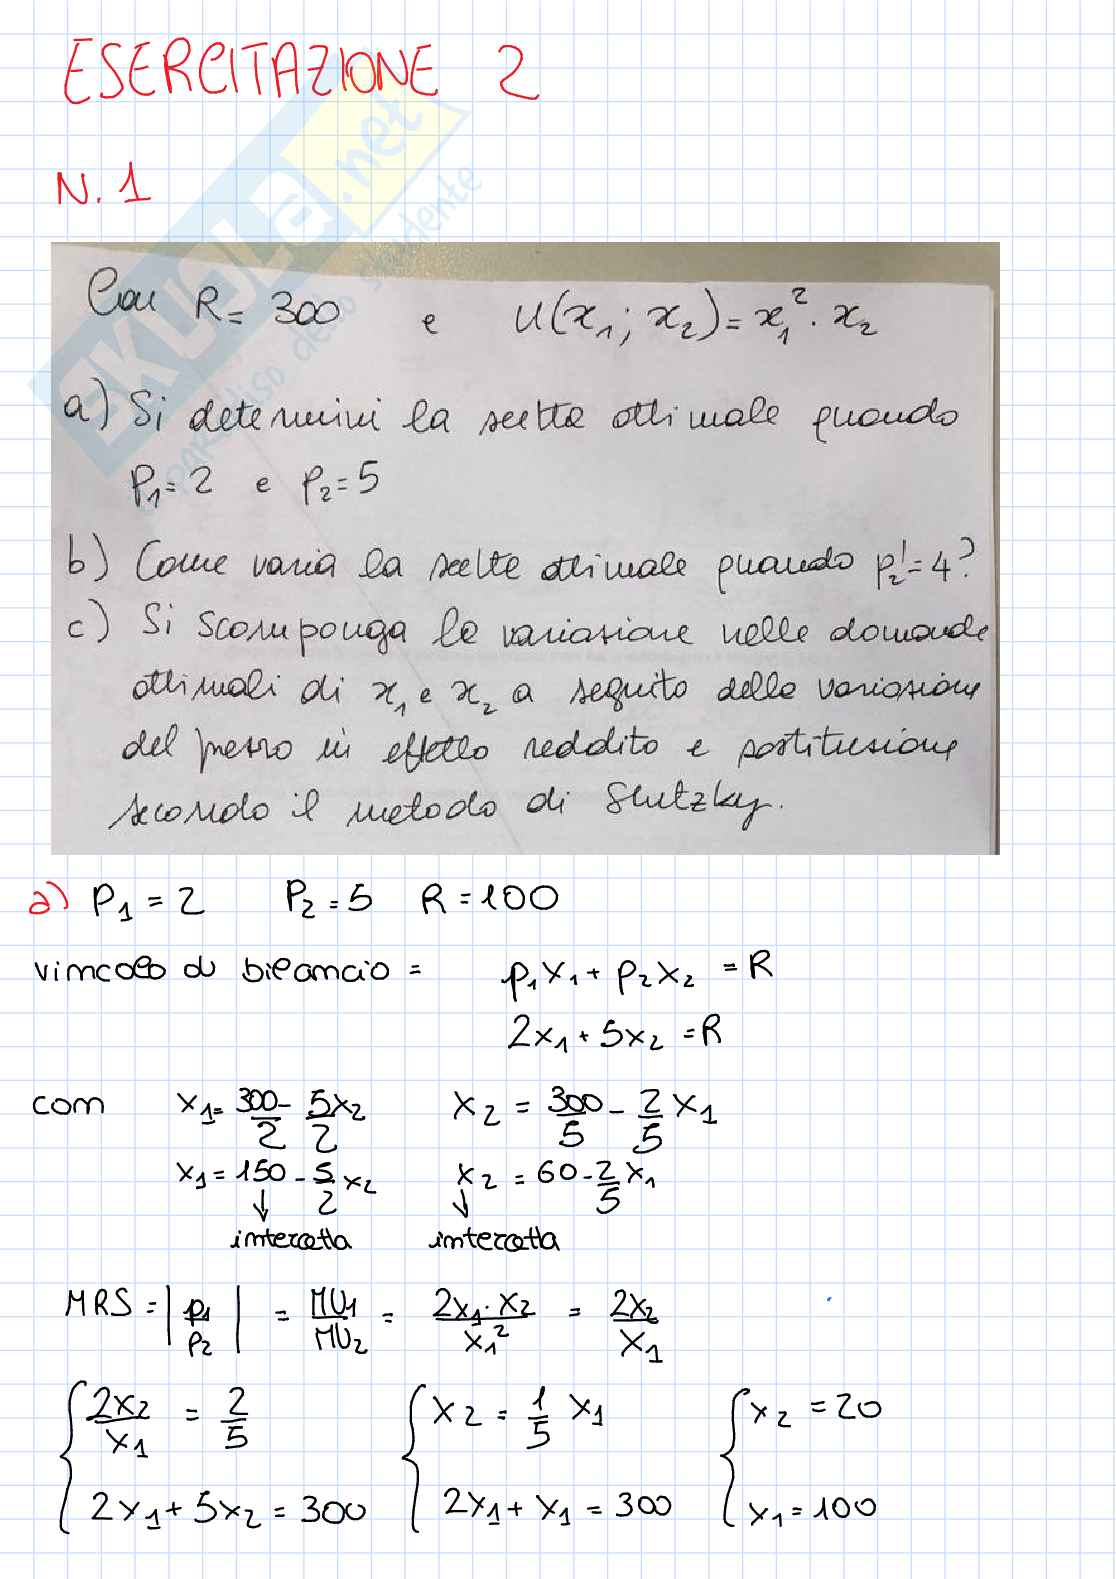 ESERCITAZIONE 2
N. 1
SKUOLA.net
paradiso dello studente
Con R= 300 e U(x₁; x₂)= x₁² · x₂
a) Si determini la scelta ottimale quando
P₁=2 e p₂=5
b) Come varia la scelta ottimale quando p₂'=4?
c) Si scomponga la variazione nelle domande
ottimali di x₁ e x₂ a seguito della variazione
del prezzo in effetto reddito e sostituzione
secondo il metodo di Slutzky.
a) P₁ = 2 P₂ = 5 R = 100
vincolo di bilancio = p₁x₁ + p₂x₂ = R
2x₁ + 5x₂ = R
con x₁ = 300/2 - 5x₂/2 x₂ = 300/5 - 2/5 x₁
x₁ = 150 - 5/2 x₂ x₂ = 60 - 2/5 x₁
↓ ↓
intercetta intercetta
MRS = |p₁/p₂| = MU₁/MU₂ = 2x₁·x₂/x₁² = 2x₂/x₁
{ 2x₂/x₁ = 2/5 { x₂ = 1/5 x₁ { x₂ = 20
2x₁ + 5x₂ = 300 2x₁ + x₁ = 300 x₁ = 100